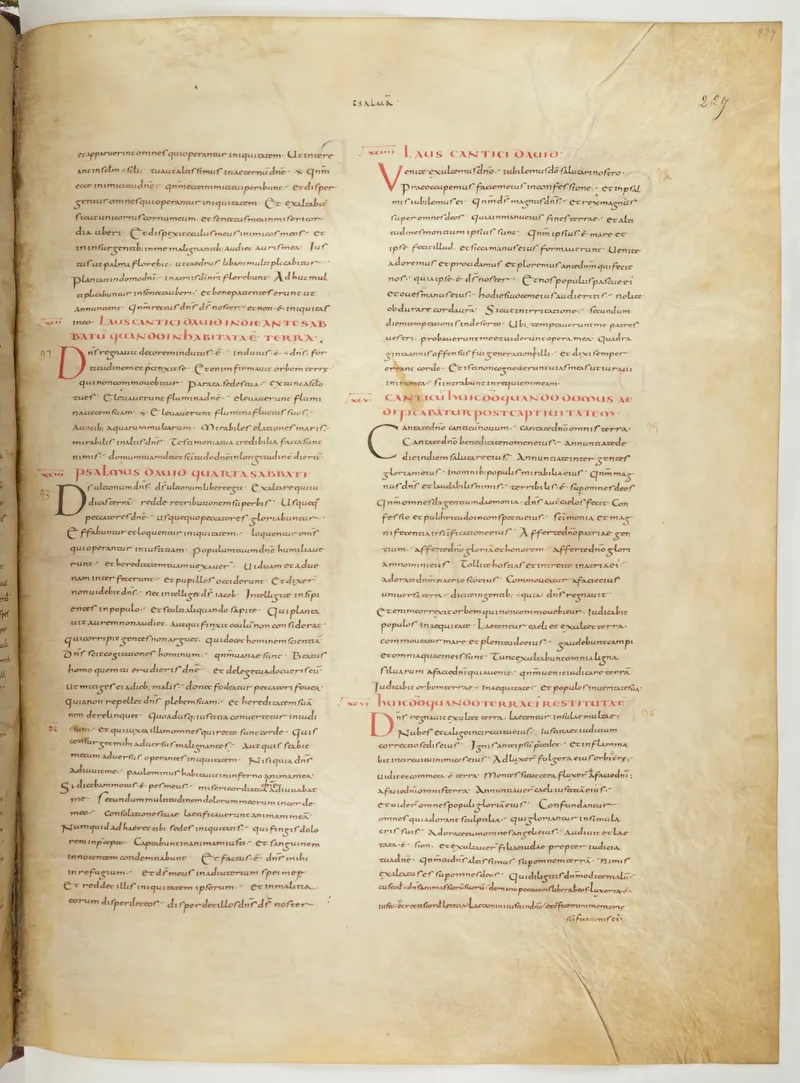 PSALMUS
227
et apparuerint omnes qui operantur iniquitatem. Ut intere
ant in sĉlm sĉli. tu autem altissimus in aeternum dn̄e. Qn̄m
ecce inimici tui dn̄e. qn̄m ecce inimici tui peribunt. et disper
gentur omnes qui operantur iniquitatem. Et exaltabit᷑
sicut unicornis cornu meum. et senectus mea in misericor
dia uberi. Et dispexit oculus meus inimicos meos. et
in insurgentib; in me malignantib; audiet auris mea. Jus
tus ut palma florebit. ut cedrus libani multiplicabitur
Plantati in domo dn̄i. in atriis di n̄ri florebunt. Ad huc mul
tiplicabuntur in senecta uberi. et bene patientes erunt ut
adnuntient. Qn̄m rectus dn̄s ds̄ noster. et non ē iniquitas
in eo.
XCII LAUS CANTICI DAUID IN DIE ANTE SAB
BATŪ QUANDO INHABITATA Ē TERRA.
Dn̄s regnauit decorem indutus ē. indutus ē dn̄s for
titudinem et praecinxit se. Et enim firmauit orbem terrę
qui non commouebitur. Parata sedes tua. ex tunc a sęclo
tu es. Eleuauerunt flumina dn̄e. eleuauerunt flumi
na uocem suam. Eleuauerunt flumina fluctus suos.
A uocib; aquarum multarum. Mirabiles elationes maris.
mirabilis in altis dn̄s. Testimonia tua credibilia facta sunt
nimis. domum tuam decet sc̄itudo dn̄e in longitudinē dierū
XCIII PSALMUS DAUID QUARTA SABBATI
Ds̄ ultionum dn̄s. ds̄ ultionum libere egit. Exaltare qui iu
dicas terrā. redde retributionem superbis. Usqueq̄
peccatores dn̄e. usquequo peccatores gloriabuntur
Effabuntur et loquentur iniquitatem. loquentur om̄s
qui operantur iniustitiam. Populum tuum dn̄e humiliaue
runt. et hereditatem tuam uexauer̄. Uiduam et adue
nam interfecerunt. et pupillos occiderunt. Et dixer̄
non uidebit dn̄s. nec intelleget ds̄ iacob. Intellegite insipi
entes in populo. et stulti aliquando sapite. Qui planta
uit aurem non audiet. Aut qui finxit oculū non considerat
Qui corripit gentes non arguet. qui docet hominem scientiā
Dn̄s scit cogitationes hominum. qn̄m uanae sunt. Beatus
homo quem tu erudieris dn̄e. et de lege tua docueris eū
Ut mitiges ei a dieb; malis. donec fodeatur peccatori fouea
Quia non repellet dn̄s plebem suam. et hereditatem suā
non derelinquet. Quoadusq; iustitia conuertatur in iudi
cium. et qui iuxta illam omnes qui recto sunt corde. Quis
consurget mihi aduersus malignantes. Aut quis stabit
mecum aduersus operantes iniquitatem. Nisi quia dn̄s
adiuuit me. paulo minus habitauit in inferno anima mea
Si dicebam motus ē pes meus. misericordia tua dn̄e adiuuabat
me. Secundum multitudinem dolorum meorum in corde
meo. Consolationes tuae laetificauerunt animam meā
Numquid adhaeret tibi sedes iniquitatis. qui fingis dolo
rem in praecepto. Captabunt in animam iusti. et sanguinem
innocentem condemnabunt. Et factus ē dn̄s mihi
in refugium. et ds̄ meus in adiutorium spei meę
Et reddet illis iniquitatem ipsorum. et in malitia
eorum disperdet eos. disperdet illos dn̄s ds̄ noster
XCIIII LAUS CANTICI DAUID
Venite exultemus dn̄o. iubilemus dō salutari nostro.
Praeoccupemus faciem eius in confessione. et in psal
mis iubilemus ei. Qn̄m ds̄ magnus dn̄s. et rex magnus
super omnes deos. Quia in manu eius fines terrae. et alti
tudines montium ipsius sunt. Qn̄m ipsius ē mare et
ipse fecit illud. et siccam manus eius formauerunt. Uenite
adoremus et procidamus et ploremus ante dn̄m qui fecit
nos. quia ipse ē ds̄ noster. Et nos populus pascuę ei᷑
et oues manus eius. hodie si uocem eius audieritis. nolite
obdurare corda urā. Sicut in irritatione. secundum
diem temptationis in deserto. Ubi temptauerunt me patres
uestri. probauerunt me et uiderunt opera mea. Quadra
ginta annis offensus fui generationi illi. et dixi semper
errant corde. Et isti non cognouerunt uias meas ut iuraui
in ira mea. si intrabunt in requiem meam.
XCV CANTICŪ HUIC DD QUANDO DOMUS AE
DIFICABATUR POST CAPTIUITATEM.
Cantate dn̄o canticum nouum. cantate dn̄o omnis terra.
Cantate dn̄o benedicite nomen eius. Annuntiate de
die in diem salutare eius. Annuntiate inter gentes
gloriam eius. in omnib; populis mirabilia eius. Qn̄m mag
nus dn̄s et laudabilis nimis. terribilis ē super omnes deos
Qn̄m omnes dii gentium daemonia. dn̄s aut̄ caelos fecit. Con
fessio et pulchritudo in conspectu eius. sc̄imonia et mag
nificentia in sc̄ificatione eius. Afferte dn̄o patriae gen
tium. afferte dn̄o gloriā et honorem. afferte dn̄o glori
am nomini eius. Tollite hostias et introite in atria ei᷑
adorate dn̄m in atrio sc̄o eius. Commoueatur a facie eius
uniuersa terra. dicite in gentib; quia dn̄s regnauit
Etenim correxit orbem qui non commouebitur. iudicabit
populos in aequitate. Laetentur caeli et exultet terra.
commoueatur mare et plenitudo eius. gaudebunt campi
et omnia quae in eis sunt. Tunc exultabunt omnia ligna
siluarum a facie dn̄i quia uenit. qn̄m uenit iudicare terrā
Judicabit orbem terrae in aequitate. et populos in ueritate sua.
XCVI HUIC DD QUANDO TERRA EI RESTITUTA Ē
Dn̄s regnauit exultet terra. laetentur insulae multae.
Nubes et caligo in circuitu eius. iustitia et iudicium
correctio sedis eius. Ignis ante ipsum praecedet. et inflamma
bit in circuitu inimicos eius. Adluxer̄ fulgora eius orbi terrę.
uidit et commota ē terra. Montes sicut cera fluxer̄ a facie dn̄i.
a facie dn̄i omnis terra. Annuntiauer̄ caeli iustitiā eius.
et uider̄ omnes populi gloriā eius. Confundantur
omnes qui adorant sculptilia. qui gloriantur in simula
cris suis. Adorate eum omnes angeli eius. Audiuit et lae
tata ē sion. et exultauer̄ filiae iudae propter iudicia
tua dn̄e. Qn̄m tu dn̄s altissimus super omnem terrā. nimis
exaltatus es super omnes deos. Qui diligitis dn̄m odite malū.
custodit dn̄s animas sc̄orū suorū. de manu peccatoris liberabit eos. Lux orta ē
iusto. et rectis corde laetitia. Laetamini iusti in dn̄o. et confitemini memoriae
sc̄ificationis ei᷑